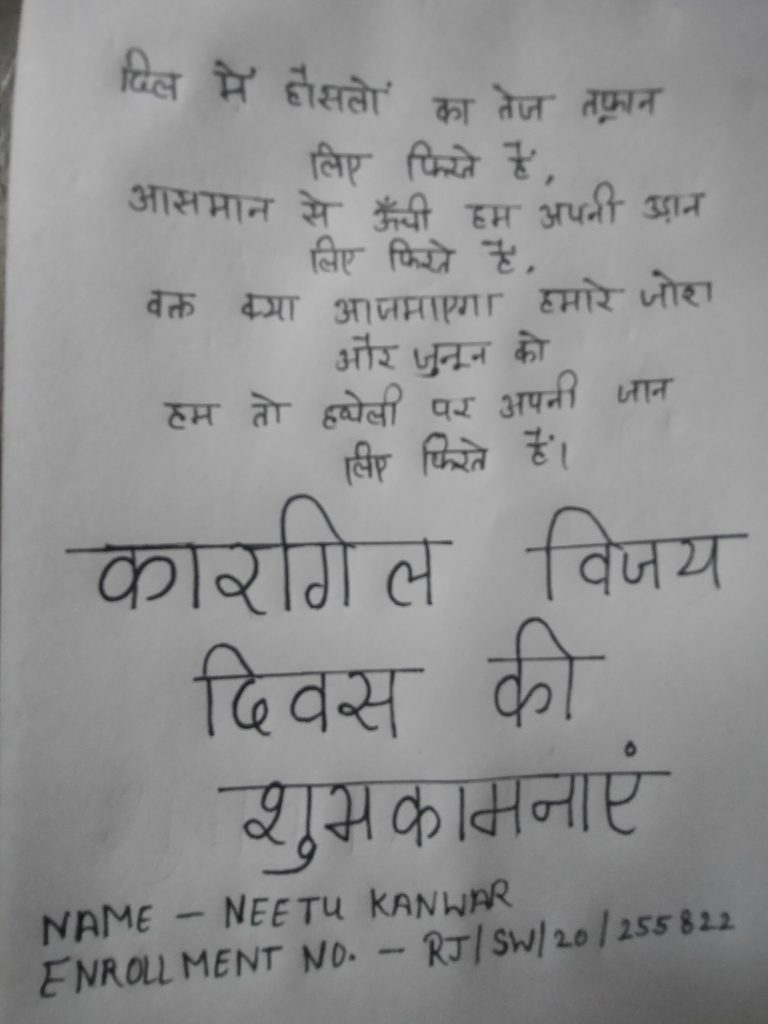 दिल में हौसलों का तेज तूफान
लिए फिरते हैं,
आसमान से ऊँची हम अपनी उड़ान
लिए फिरते हैं,
वक्त क्या आजमाएगा हमारे जोश
और जुनून को
हम तो हथेली पर अपनी जान
लिए फिरते हैं।
कारगिल विजय
दिवस की
शुभकामनाएं
NAME - NEETU KANWAR
ENROLLMENT NO. - RJ/SW/20/255822